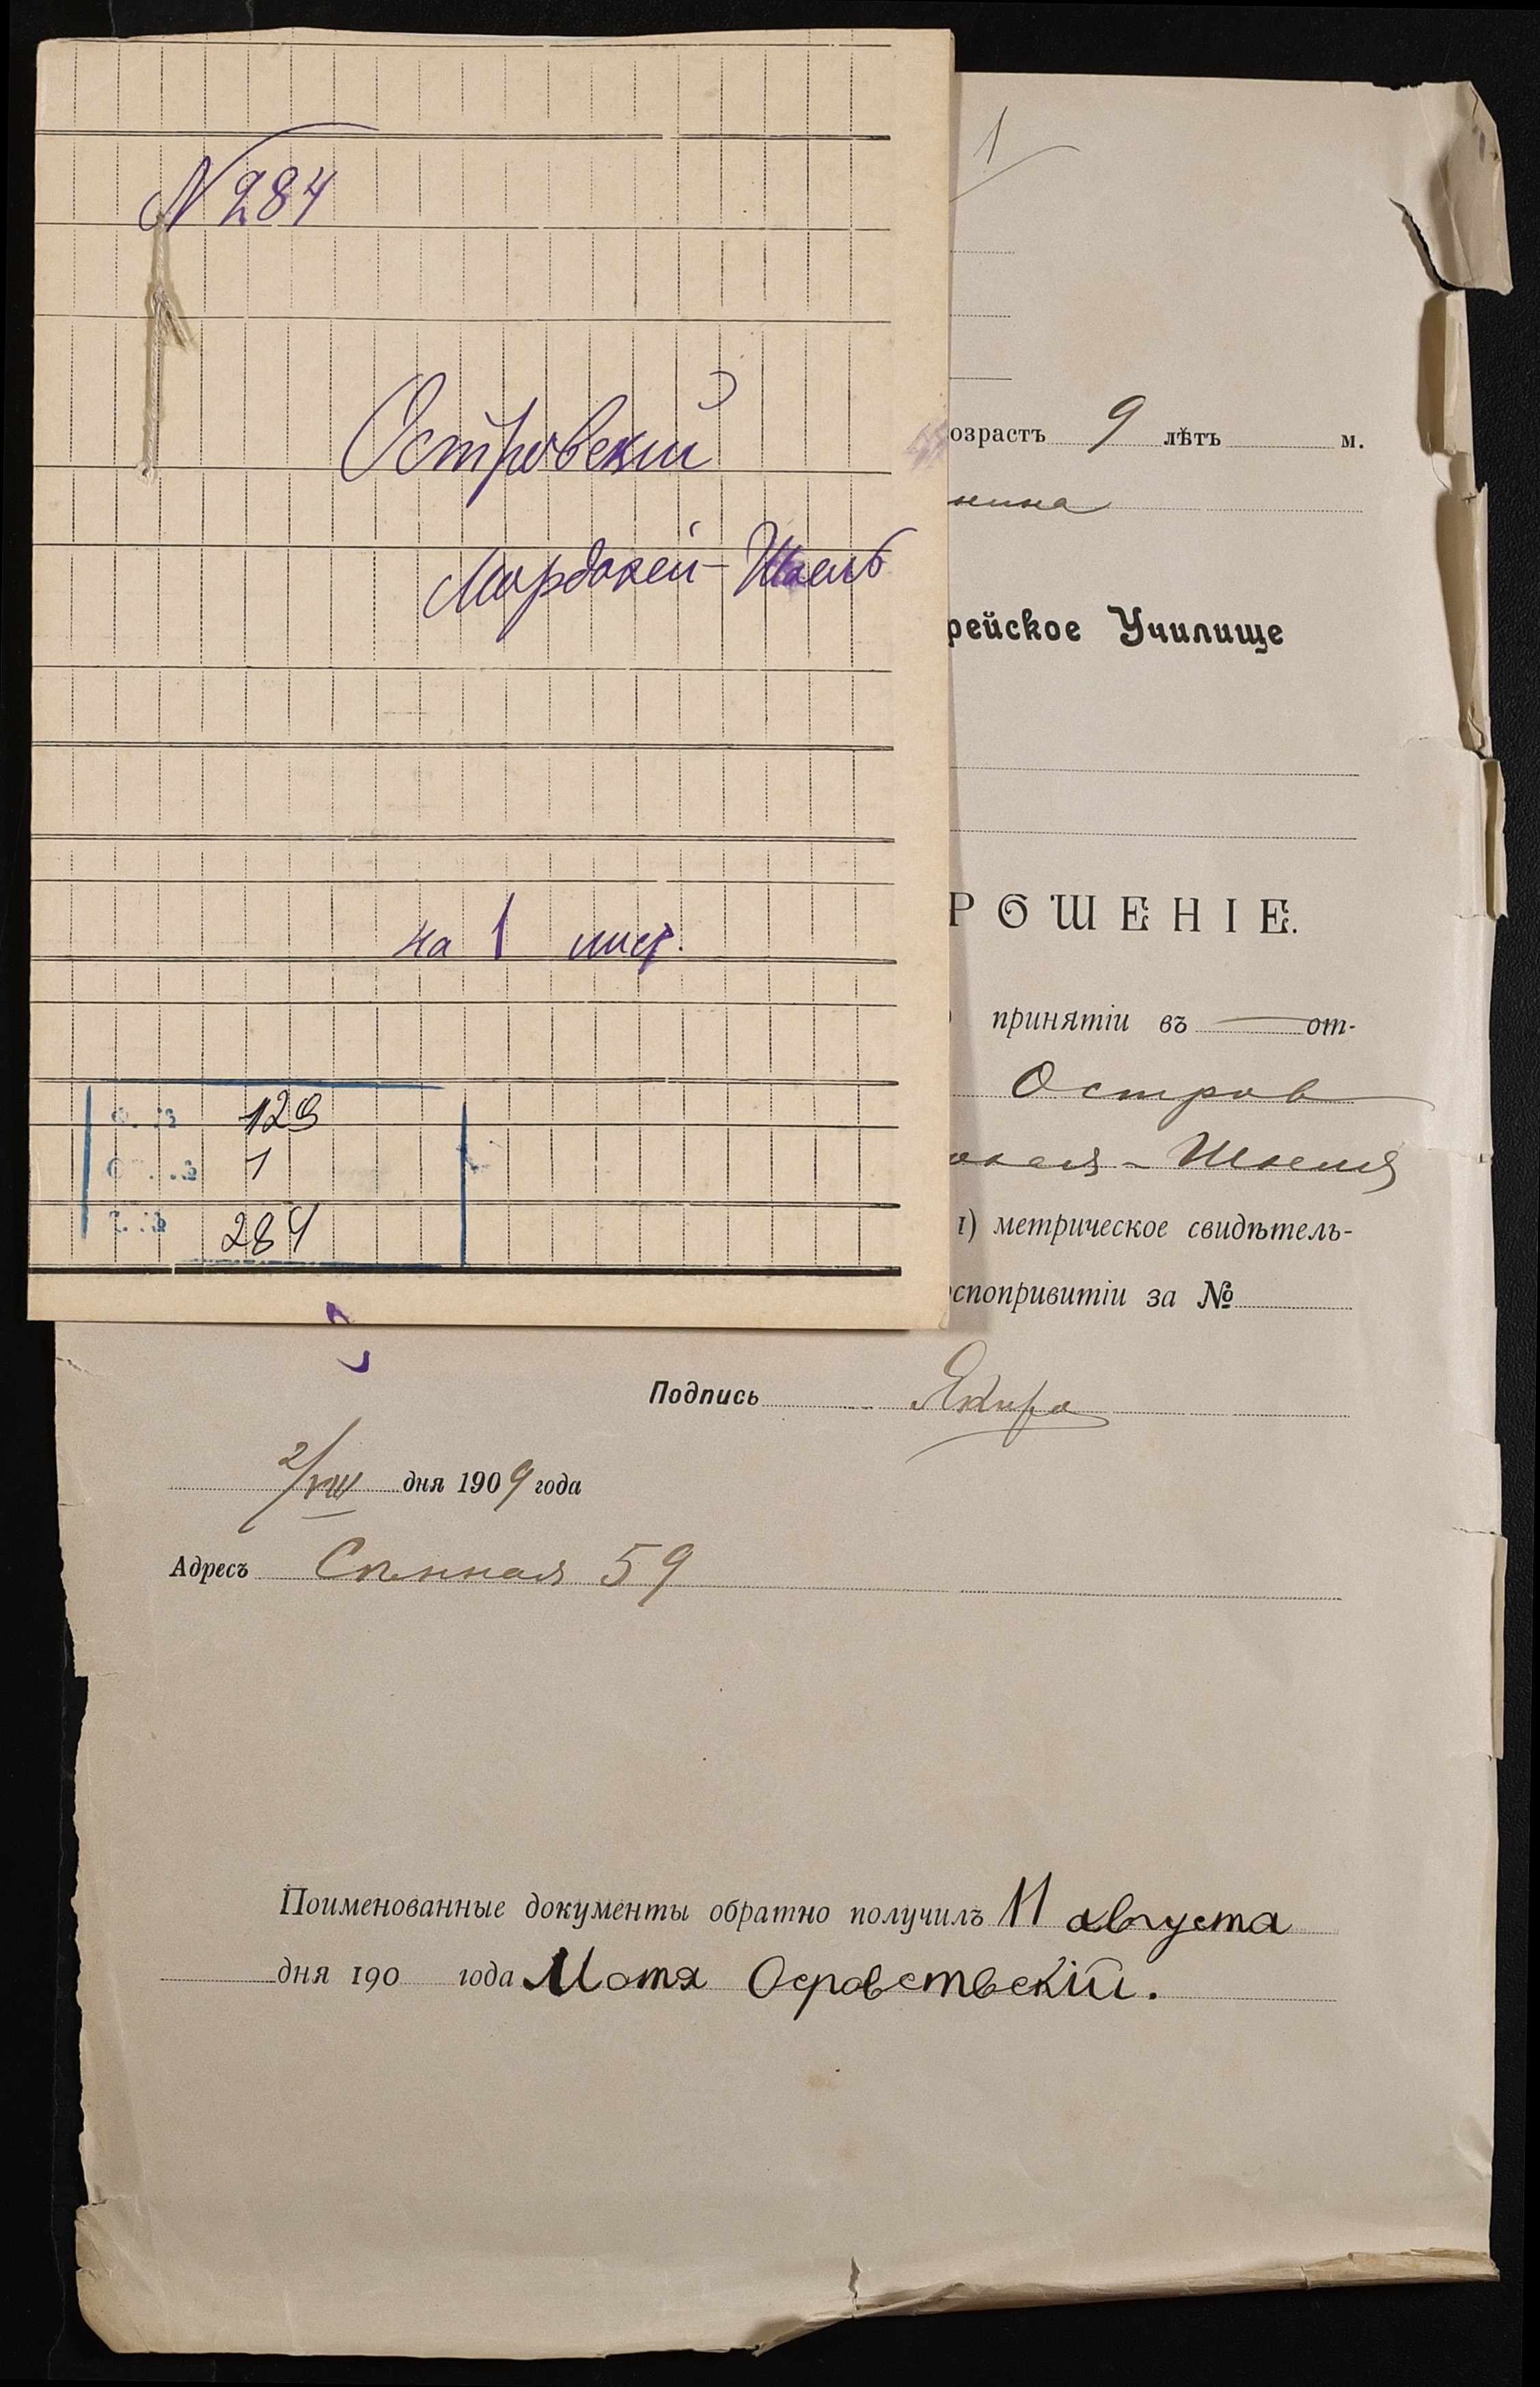 N 284
Островский
Мордхей-Шмель
на 1 лист.
129
1
284
1
озрастъ 9 лѣтъ м.
нина
рейское Училище
РОШЕНІЕ.
принятіи въ от-
Остров
1) метрическое свидѣтель-
оспопривитіи за №
Подпись
2/VIII дня 1909 года
Адресъ Сѣнная 59
Поименованные документы обратно получилъ 11 августа
дня 190 года Мотя Осровствскій.